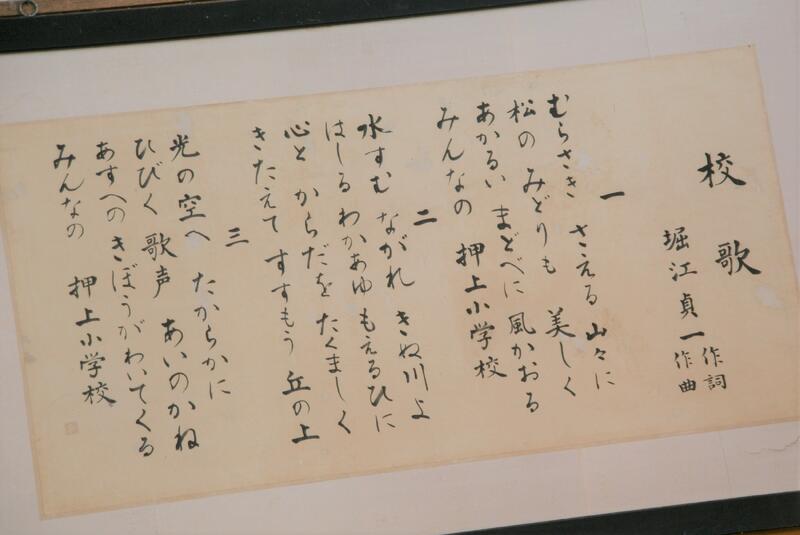 校歌
堀江貞一 作詞 作曲
一
むらさき さえる 山々に
松の みどりも 美しく
あかるい まどべに 風かおる
みんなの 押上小学校
二
水すむ ながれ きぬ川よ
はしる わかあゆ もえるひに
心と からだを たくましく
きたえて すすもう 丘の上
三
光の空へ たからかに
ひびく 歌声 あいのかね
あすへの きぼうがわいてくる
みんなの 押上小学校